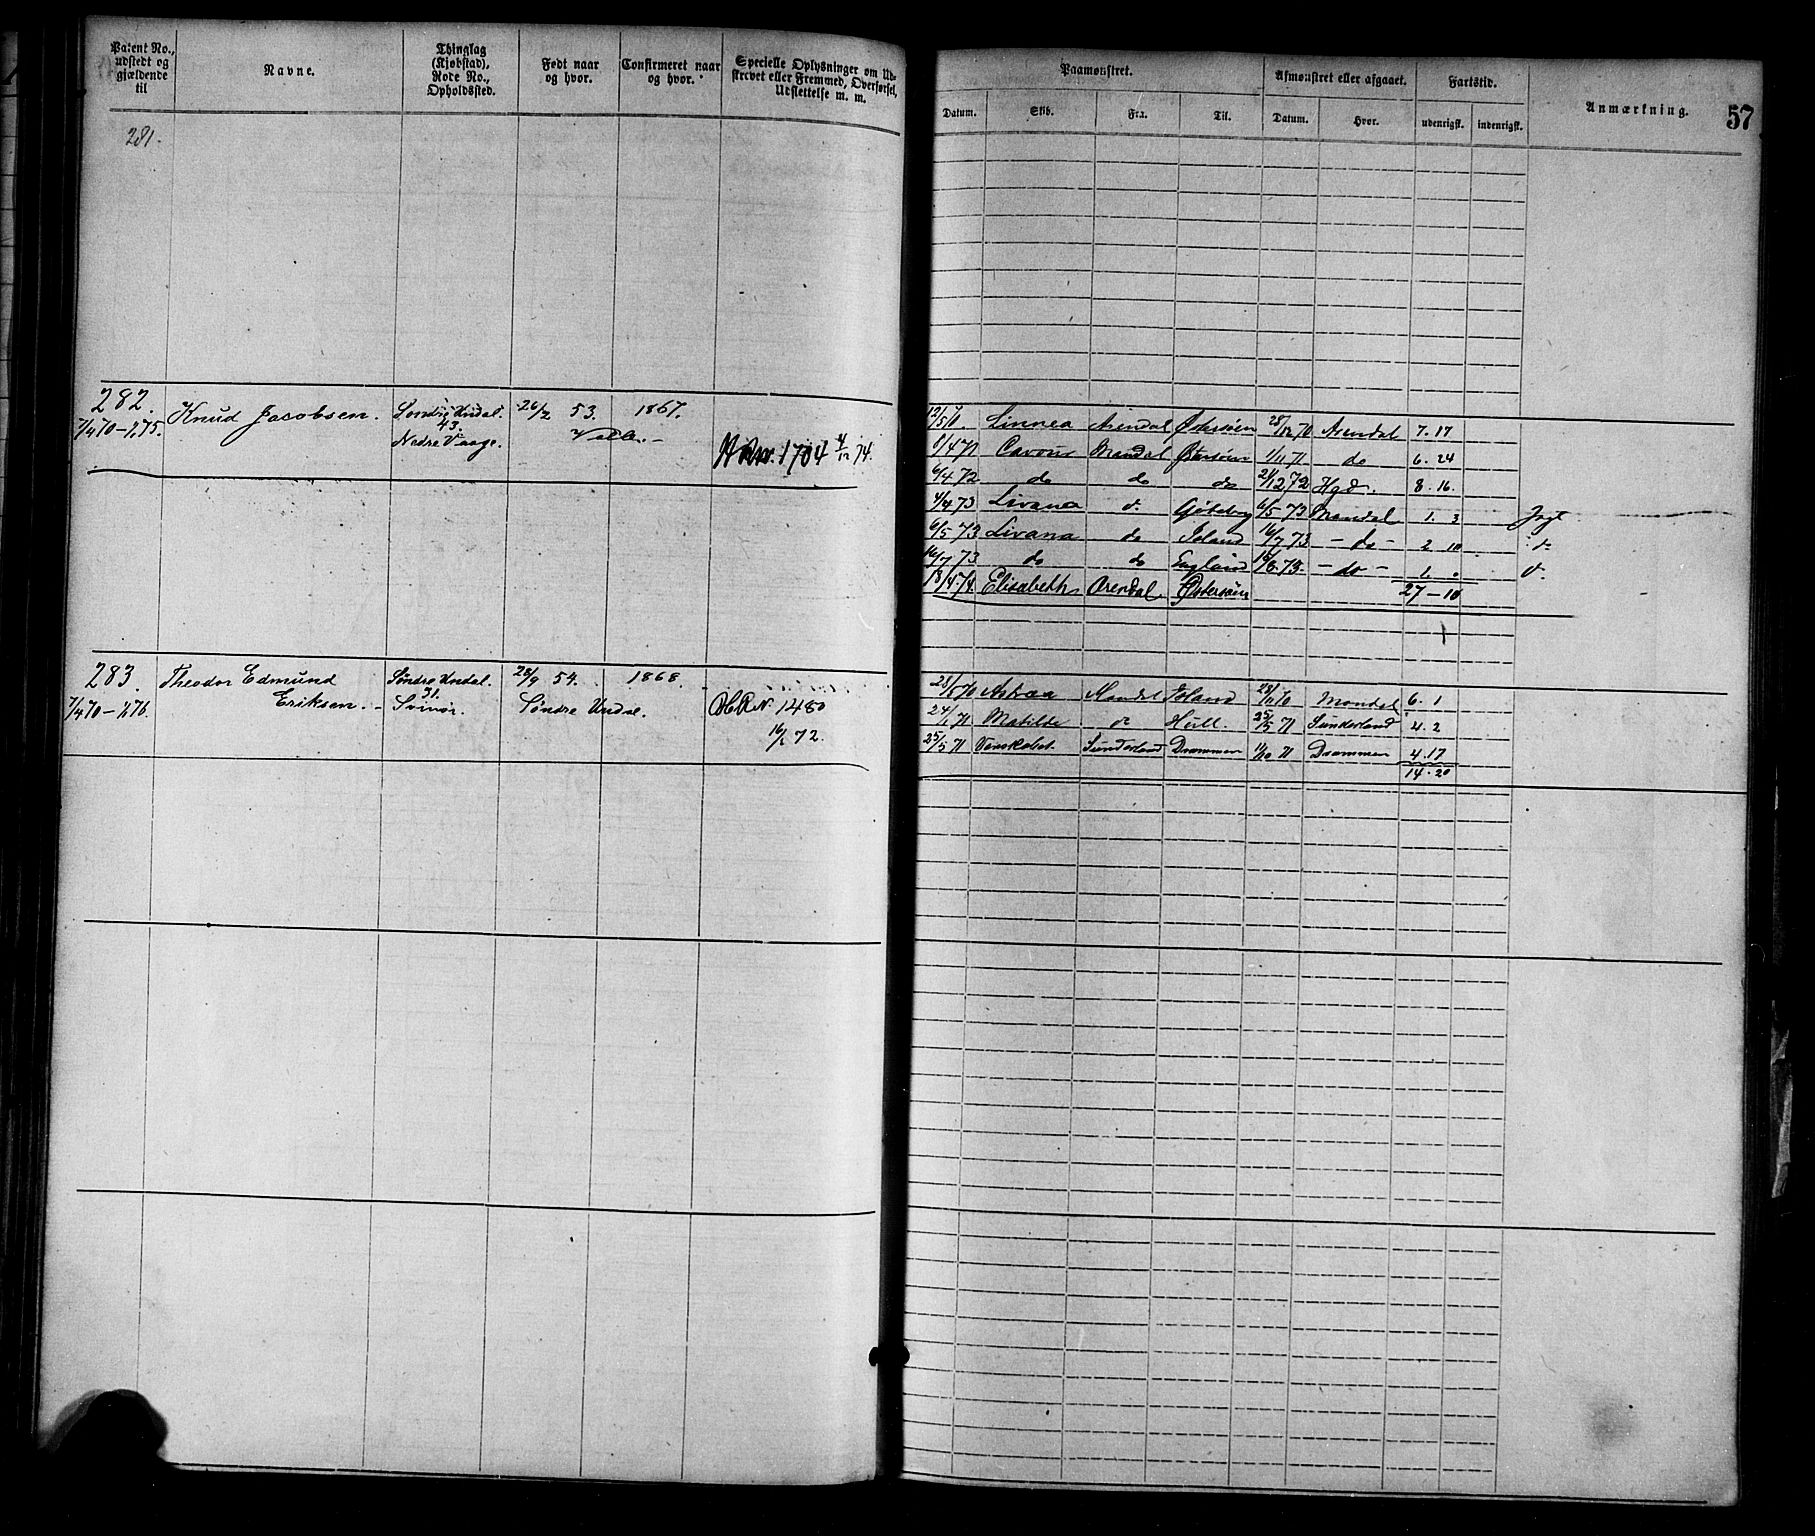 Patent No., udstedt og gjældende til
Navne.
Thinglag (Kjøbstad), Rode No., Opholdssted.
Født naar og hvor.
Confirmeret naar og hvor.
Specielle Oplysninger om Udskrevet eller Fremmed, Overførsel, Udslettelse m. m.
Paamønstret.
Afmønstret eller afgaaet.
Fartstid.
Anmærkning.
57
Datum.
Skib.
Fra.
Til.
Datum.
Hvor.
udenrigsk.
indenrigsk.
281.
282.
7/4 70 – 1/1 75.
Knud Jacobsen.
Søndre Undal.
43.
Nedre Vaage.
26/2 53.
Valle. –
1867.
1704 4/12 74.
12/5 70. Linnea Arendal Østersøen 28/12 70 Arendal 7. 17
8/4 71 Cavour Mandal Østersøen 1/11 71 do 6. 24
6/4 72 do do do 21/12 72 8. 16.
4/4 73 Livana d. Gøteborg 6/5 73 Mandal 1. 3 Jagt
6/5 73 Livana do Island 16/7 73 – do – 2 10 do
16/7 73 do do England 16/8 73. – do – 1. 0 d.
18/4 74. Elisabeth Arendal Østersøen 27 – 10
283.
7/4 70 – 1/1 76.
Theodor Edmund
Eriksen. –
Søndre Undal.
31.
Svinør.
28/9 54.
Søndre Undal.
1868.
1480
16/1 72.
28/5 70 Astræa Mandal Island 28/11 70 Mandal 6. 1
24/1 71 Matilde do Hull. 25/5 71 Sunderland 4. 2
25/5 71 Venskabet. Sunderland Drammen 11/10 71 Drammen 4. 17
14. 20